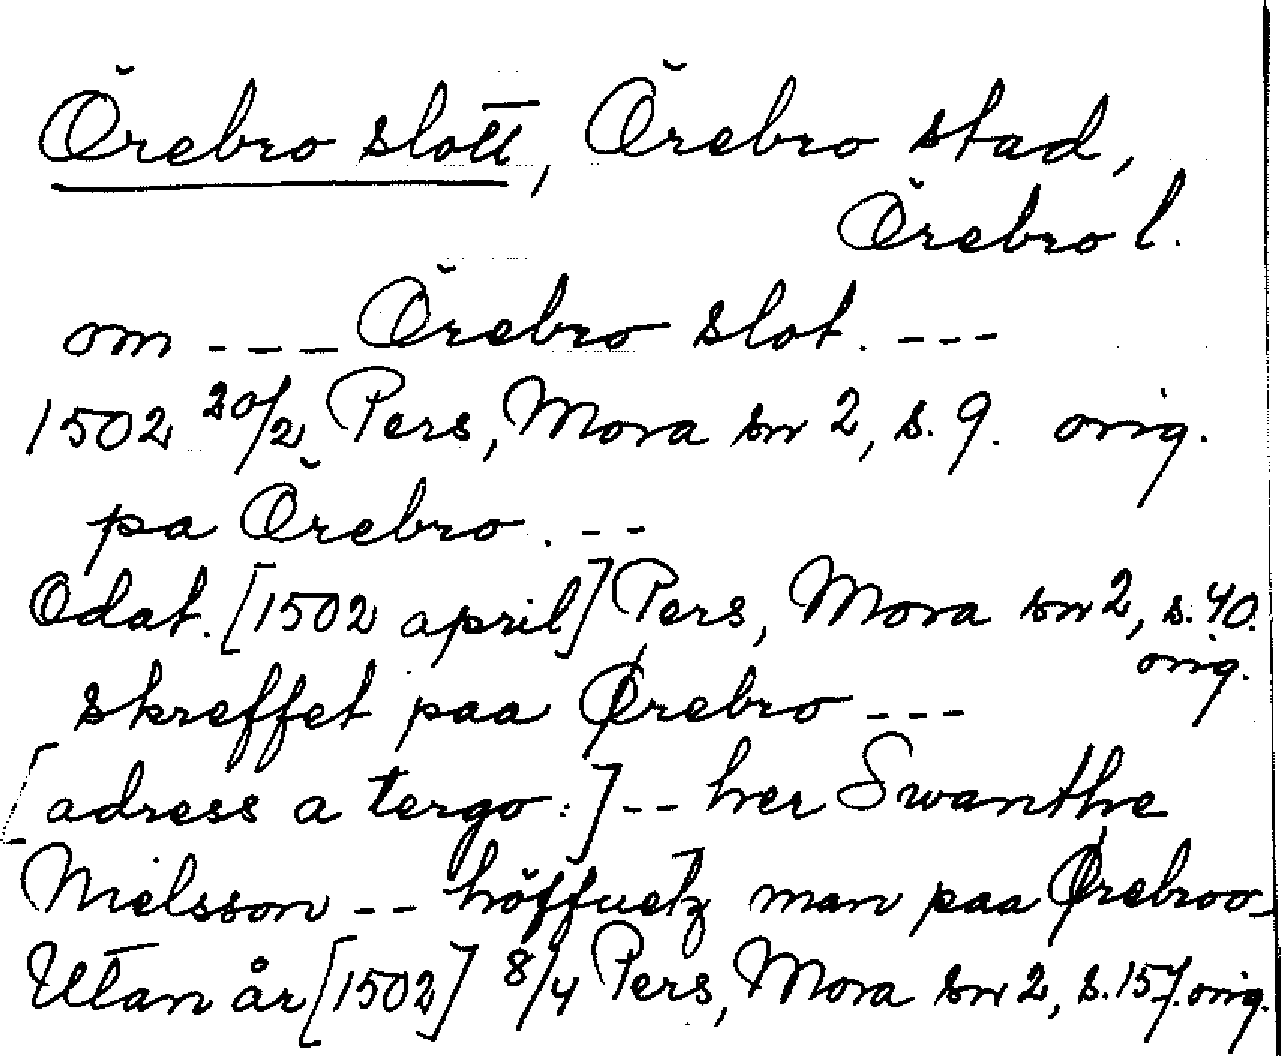 Örebro slott, Örebro stad,
Örebro l.
om --- Örebro slot. ---
1502 20/2 Pers, Mora sn 2, s. 9. orig.
pa Örebro. --
Odat. [1502 april] Pers, Mora sn 2, s. 40.
orig.
skreffet paa Ørebro ---
[adress a tergo:] -- her Swanthe
Nielsson -- höffuetz man paa Ørebroo-
Utan år [1502] 8/4 Pers, Mora sn 2, s. 157. orig.